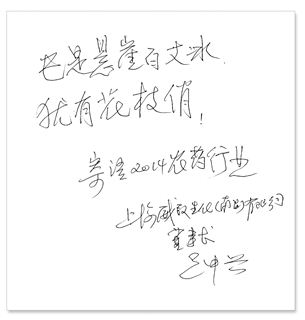 已是悬崖百丈冰
犹有花枝俏！
寄语2014农药行业
上海威敌生化(南昌)有限公司
董事长